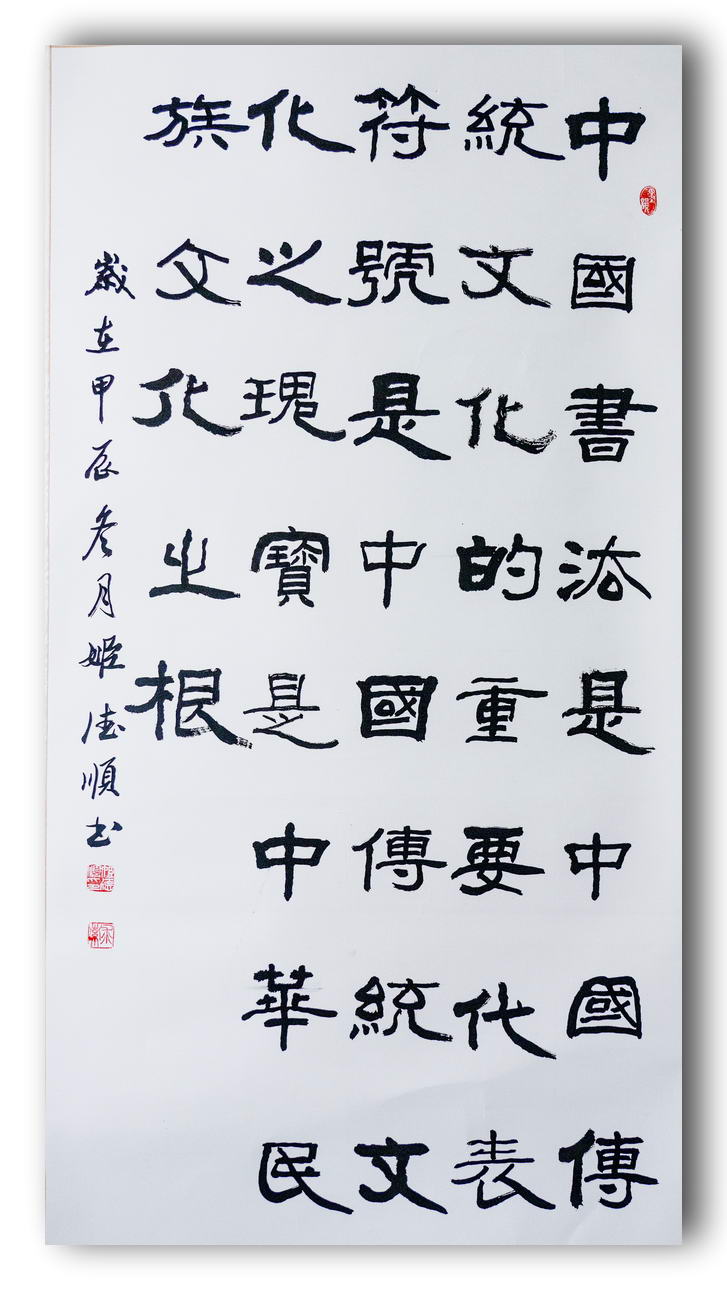 中國書法是中國傳
統文化的重要代表
符號是中國傳統文
化之瑰寶是中華民
族文化之根
歲在甲辰冬月姬德順书